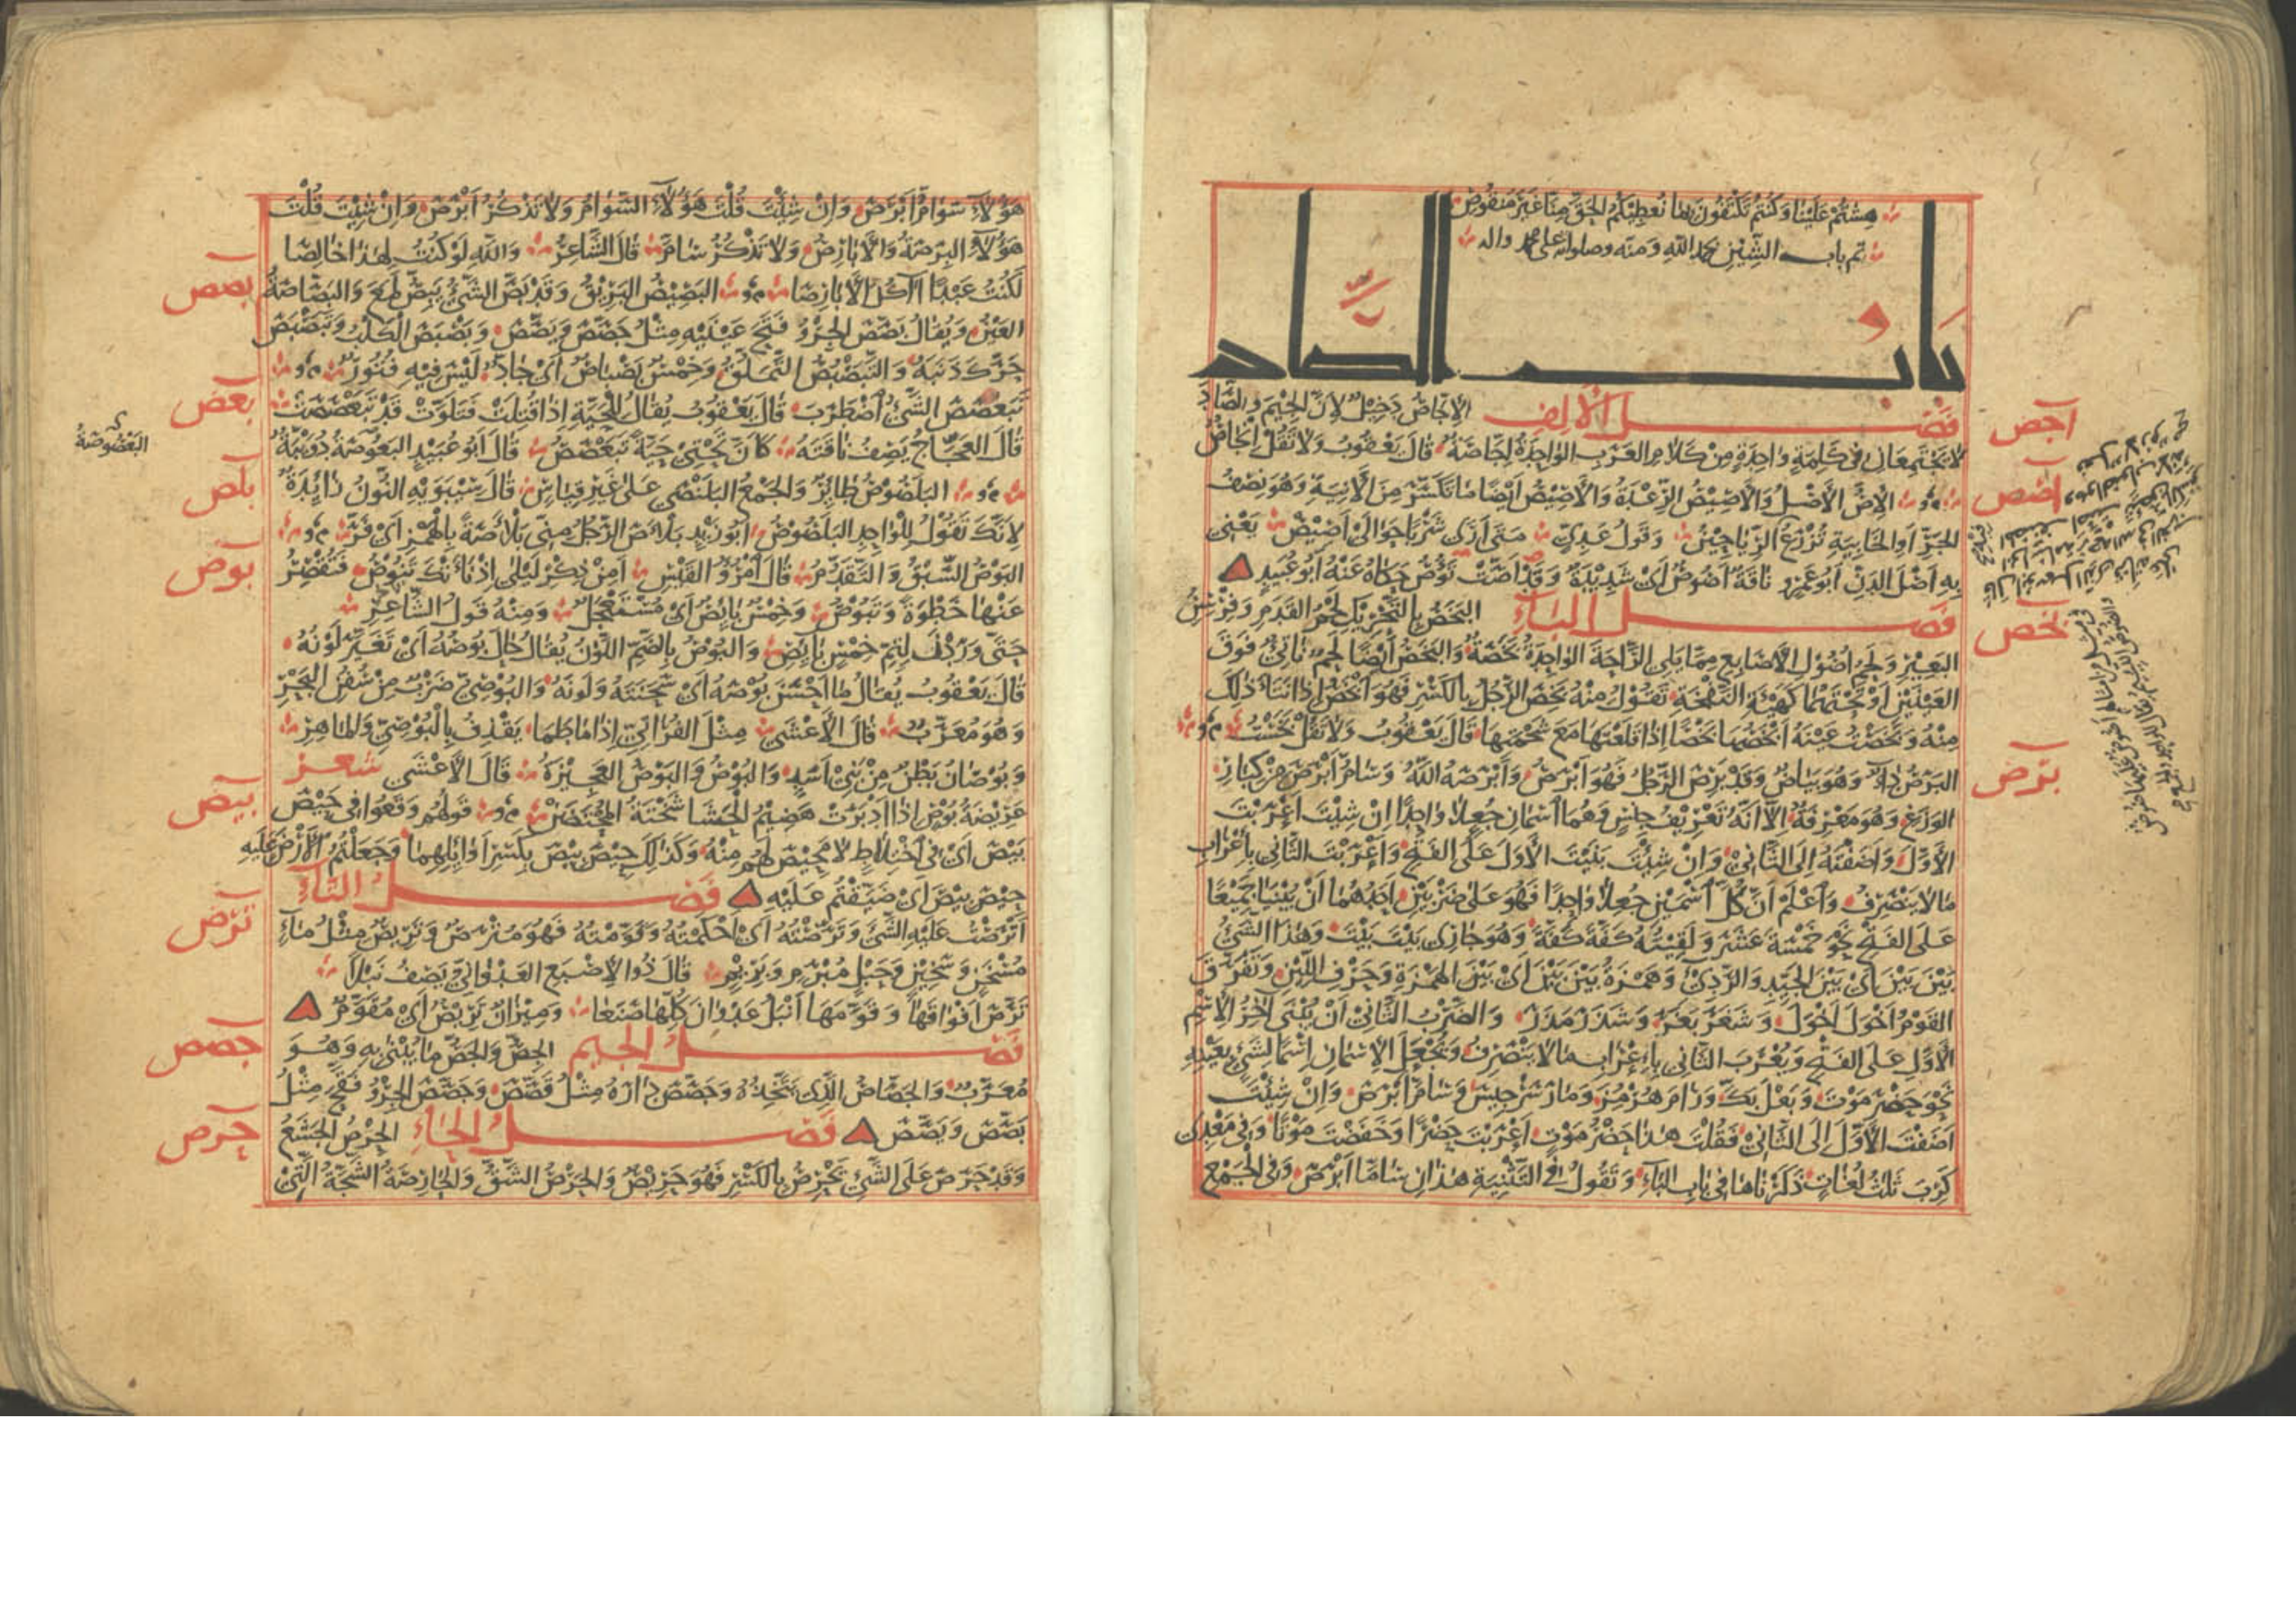 هشتم علينا وكنتم تكتفون بما نعطيكم الحق منا غير منقوص
تم باب الشين بحمد الله ومنه وصلواته على محمد واله
باب الصاد
فصل الألف الإجاص دخيل لأن الجيم والصاد
أجص
لا يجتمعان في كلمة واحدة من كلام العرب الواحدة إجاصة قال يعقوب ولا تقل انجاص
أصص
الإص الأصل والأصيص الرعدة والأصيص أيضا ما تكسر من الآنية وهو نصف
الجر أو الخابية تزرع الرياحين وقول عدي متى أرى شربا حوالي أصيص يعني
به أصل الدن أبو عمرو ناقة أصوص أي شديدة وقد أصت تؤص حكاه عنه أبو عبيد
فصل الباء البخص بالتحريك لحم القدم وفرسن
بخص
البعير ولحم أصول الأصابع مما يلي الراحة الواحدة بخصة والبخص أيضا لحم ناتئ فوق
العينين أو تحتهما كهيئة النفخة تقول منه بخص الرجل بالكسر فهو أبخص إذا نتأ ذلك
منه وبخصت عينه أبخصها بخصا إذا قلعتها مع شحمتها قال يعقوب ولا تقل بخست
برص
البرص داء وهو بياض وقد برص الرجل فهو أبرص وأبرصه الله وسام أبرص من كبار
الوزغ وهو معرفة إلا أنه تعريف جنس وهما اسمان جعلا واحدا إن شئت أعربت
الأول وأضفته إلى الثاني وإن شئت بنيت الأول على الفتح وأعربت الثاني بإعراب
ما لا ينصرف واعلم أن كل اسمين جعلا واحدا فهو على ضربين أحدهما أن يبنيا جميعا
على الفتح نحو خمسة عشر ولقيته كفة كفة وهو جاري بيت بيت وهذا الشئ
بين بين أي بين الجيد والردئ وهمزة بين بين أي بين الهمزة وحرف اللين وتفرق
القوم أخول أخول وشغر بغر وشذر مذر والضرب الثاني أن يبنى آخر الاسم
الأول على الفتح ويعرب الثاني بإعراب ما لا ينصرف ويجعل الاسمان اسما لشئ بعينه
نحو حضرموت وبعلبك ورام هرمز ومار سرجيس وسام أبرص وإن شئت
أضفت الأول إلى الثاني فقلت هذا حضرموت أعربت حضرا وخفضت موتا وفي معدي
كرب ثلث لغات ذكرناها في باب الباء وتقول في التثنية هذان ساما أبرص وفي الجمع
هؤلاء سوام أبرص وإن شئت قلت هؤلاء السوام ولا تذكر أبرص وإن شئت قلت
هؤلاء البرصة والأبارص ولا تذكر سام قال الشاعر والله لو كنت لهذا خالصا
بصص
لكنت عبدا آكل الأبارصا البصيص البريق وقد بص الشئ يبص لمع والبصاصة
العين ويقال بصص الجرو فتح عينيه مثل جصص ويصص وبصبص الكلب وتبصبص
حرك ذنبه والتبصبص التملق وخمس بصباص أي جاد ليس فيه فتور
بعص
تبعصص الشئ اضطرب قال يعقوب يقال للحية إذا قتلت فتلوت قد تبعصصت
البعصوصة
قال العجاج يصف ناقته كأن تحتي حية تبعصص قال أبو عبيد البعوصة دويبة
بلص
البلصوص طائر والجمع البلنصى على غير قياس قال سيبويه النون زائدة
لأنك تقول للواحد البلصوص أبو زيد بلأص الرجل مني بلأصة بالهمز أي فر
بوص
البوص السبق والتقدم قال امرؤ القيس أمن ذكر ليلى إذ نأتك تنوص فتقصر
عنها خطوة وتبوص وخمس بائص أي مستعجل ومنه قول الشاعر
حتى وردن لتم خمس بائص والبوص بالضم اللون يقال حال بوصه أي تغير لونه
قال يعقوب يقال ما أحسن بوصه أي سحنته ولونه والبوصي ضرب من سفن البحر
وهو معرب قال الأعشى مثل الفراتي إذا ما طما يقذف بالبوصي والماهر
وبوصان بطن من بني أسد والبوص والبوص العجيزة قال الأعشى شعر
بيص
عريضة بوص إذا أدبرت هضيم الحشا شختة المحتضن قولهم وقعوا في حيص
بيص أي في اختلاط لا محيص لهم منه وكذلك حيص بيص بكسر أوائلهما وجعلتم الأرض عليه
حيص بيص أي ضيقتم عليه فصل التاء
ترص
أترصت عليه الشئ وترصته أي أحكمته وقومته فهو مترص وتريص مثل ماء
مسخن وسخين وحبل مبرم وبريم قال ذو الاصبع العدواني يصف نبلا
ترص أفواقها وقومها أنبل عدوان كلها صنعا وميزان تريص أي مقوم
جصص
فصل الجيم الجص والجص ما يبنى به وهو
معرب والجصاص الذي يتخذه وجصص داره مثل قصص وجصص الجرو فقح مثل
حرص
بصص ويصص فصل الحاء الحرص الجشع
وقد حرص على الشئ يحرص بالكسر فهو حريص والحرص الشق والحارصة الشجة التي